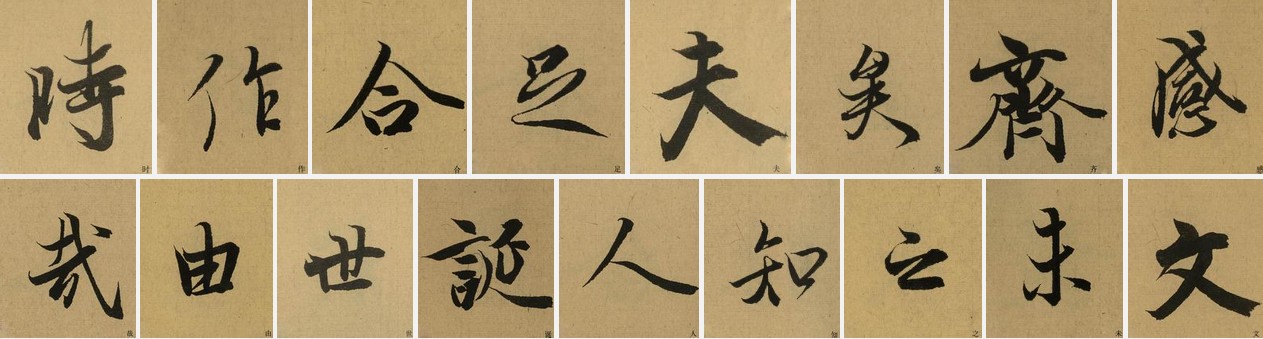 時作合足夫矣齊感
时 作 合 足 夫 矣 齐 感
哉由世誕人知之未文
哉 由 世 人 知 之 未 文